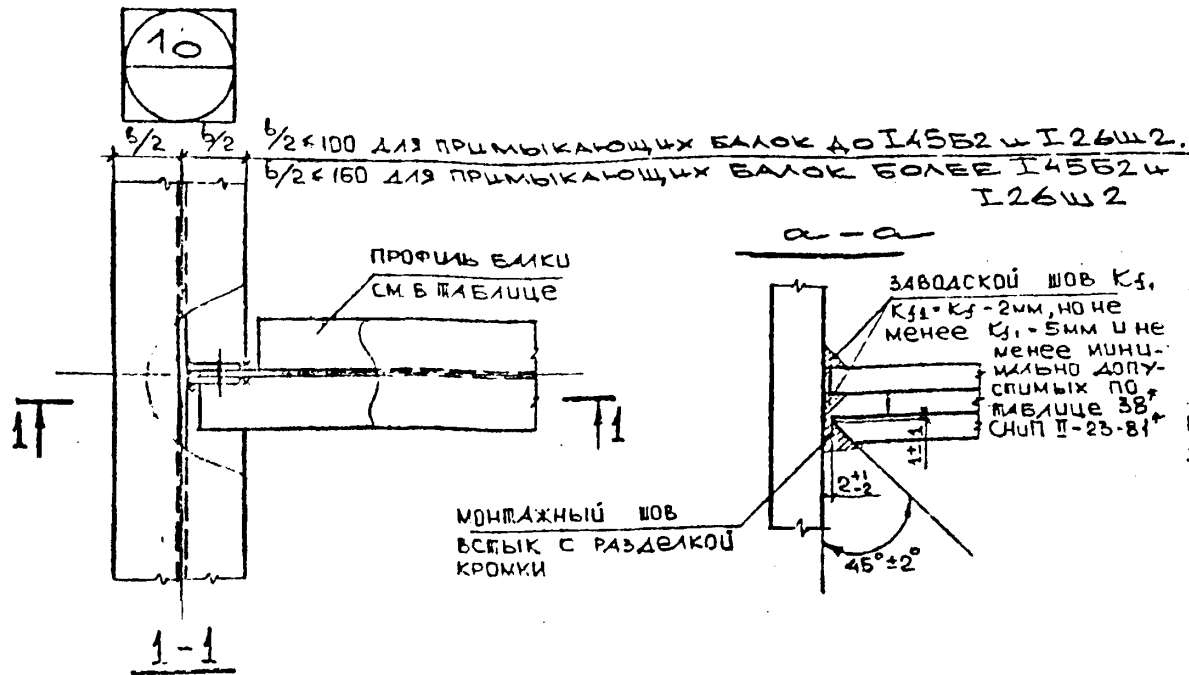 10
b/2 b/2
b/2 ≤ 100 ДЛЯ ПРИМЫКАЮЩИХ БАЛОК ДО I45Б2 И I26Ш2.
b/2 ≤ 160 ДЛЯ ПРИМЫКАЮЩИХ БАЛОК БОЛЕЕ I45Б2 И
I26Ш2
а-а
ПРОФИЛЬ БАЛКИ
СМ. В ТАБЛИЦЕ
ЗАВОДСКОЙ ШОВ Kf1
Kf1 = Kf - 2мм, НО НЕ
МЕНЕЕ Kf1 - 5мм И НЕ
МЕНЕЕ МИНИ-
МАЛЬНО ДОПУ-
СТИМЫХ ПО
ТАБЛИЦЕ 38*
СНиП II-23-81*
1 1
1±1
2+1-2
МОНТАЖНЫЙ ШОВ
ВСТЫК С РАЗДЕЛКОЙ
КРОМКИ
45°±2°
1-1